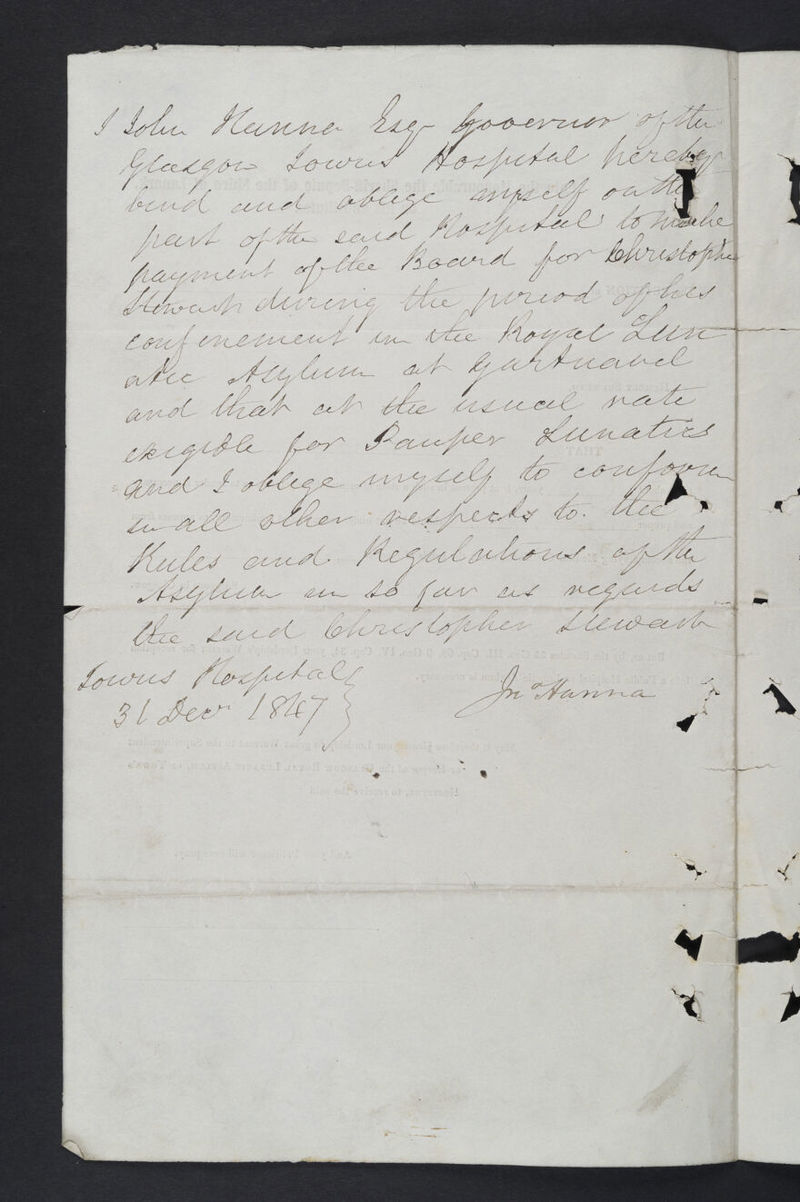 I John Hanna Esqr Governor of the
Glasgow Towns Hospital hereby
bind and oblege myself on the
part of the said Hospital to make
payment of the Board for Christopher
Stewart during the period of his
confinement in the Royal Lun
atic Asylum at Gartnavel
and that at the usual rate
exigible for Pauper Lunatics
and I oblege myself to conform
in all other respects to the
Rules and Regulations of the
Asylum in so far as regards
the said Christopher Stewart
Towns Hospital
31 Decr 1847
Jno Hanna